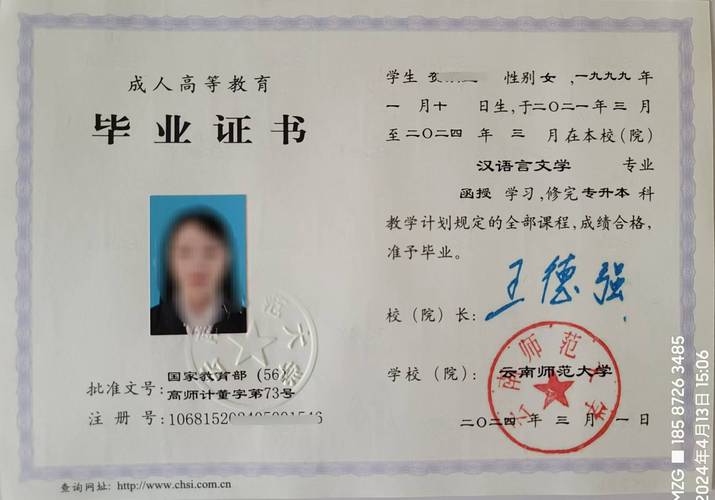 成人高等教育
毕业证书
批准文号：国家教育部（56）
高师计董字第73号
注册号：
查询网址：http://www.chsi.com.cn
学生 性别 女，一九九九年
一月十日生，于二〇二一年三月
至二〇二四年三月在本校（院）
汉语言文学 专业
函授 学习，修完 专升本 科
教学计划规定的全部课程，成绩合格，
准予毕业。
校（院）长：王德强
学校（院）：云南师范大学
二〇二四年三月一日
2024年4月13日 15:06